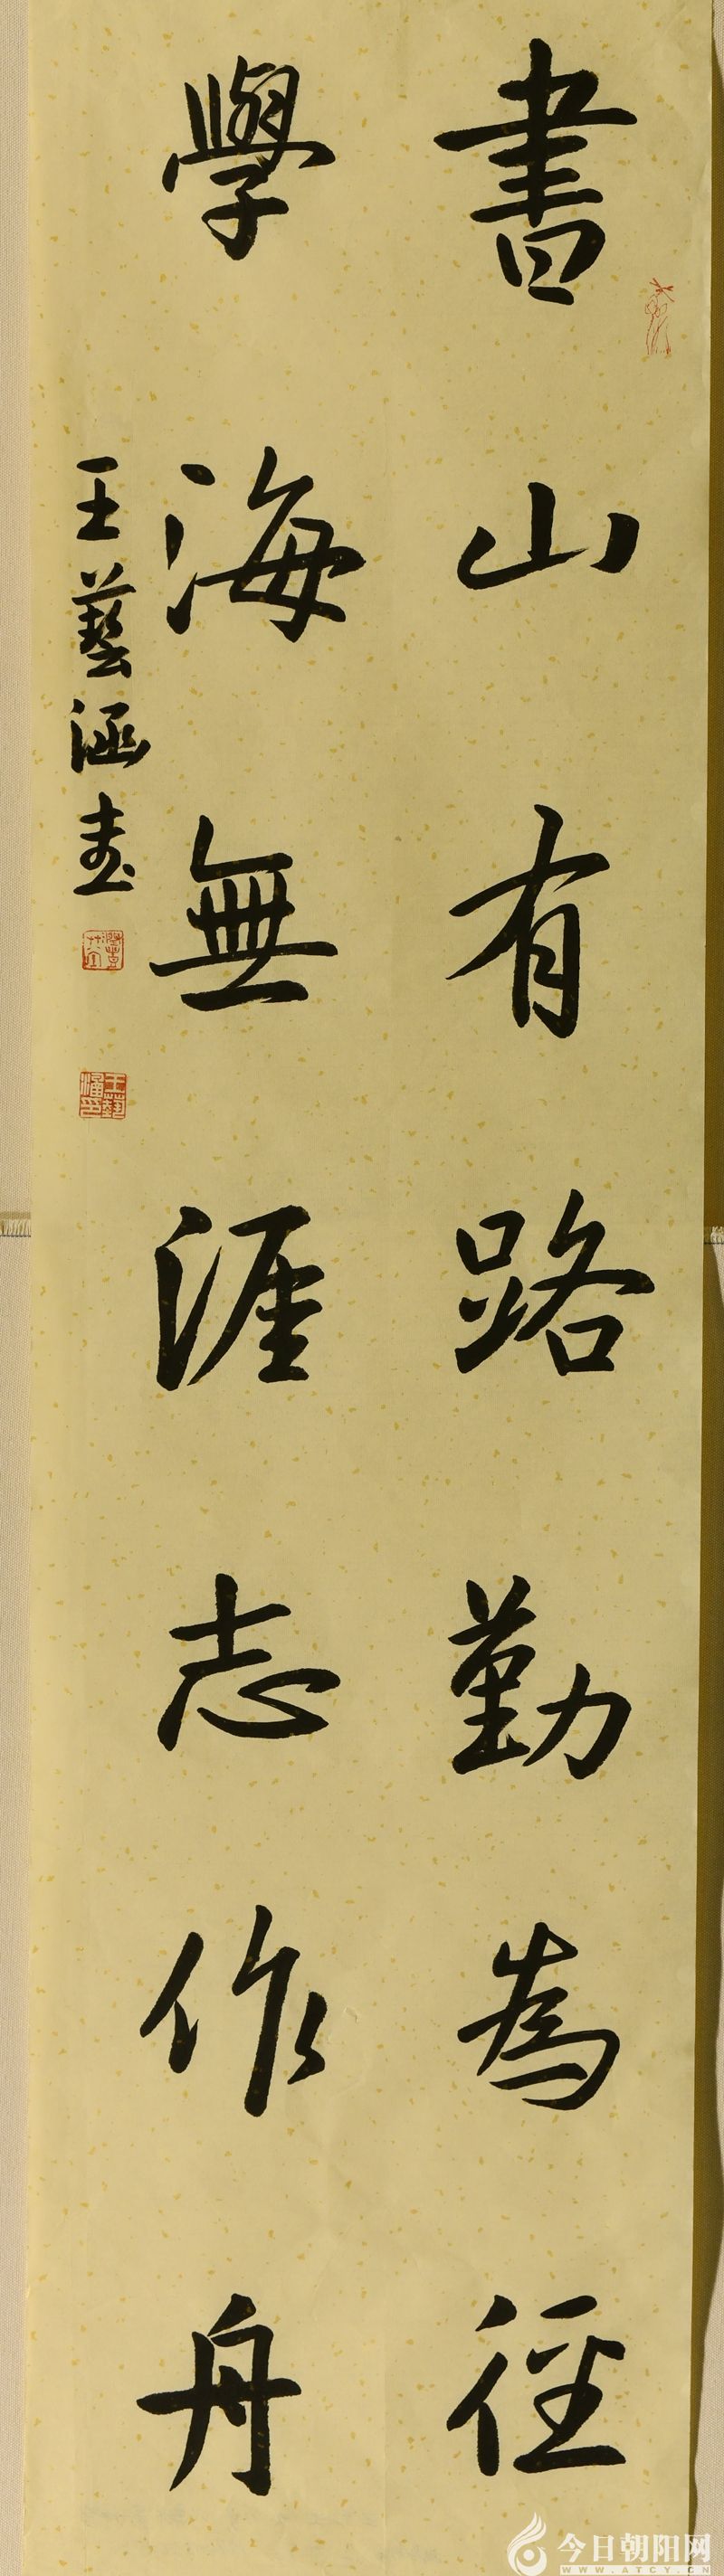 書山有路勤為徑
學海無涯志作舟
王藝涵書
王藝涵印
今日朝阳网
WWW.ATCY.CN